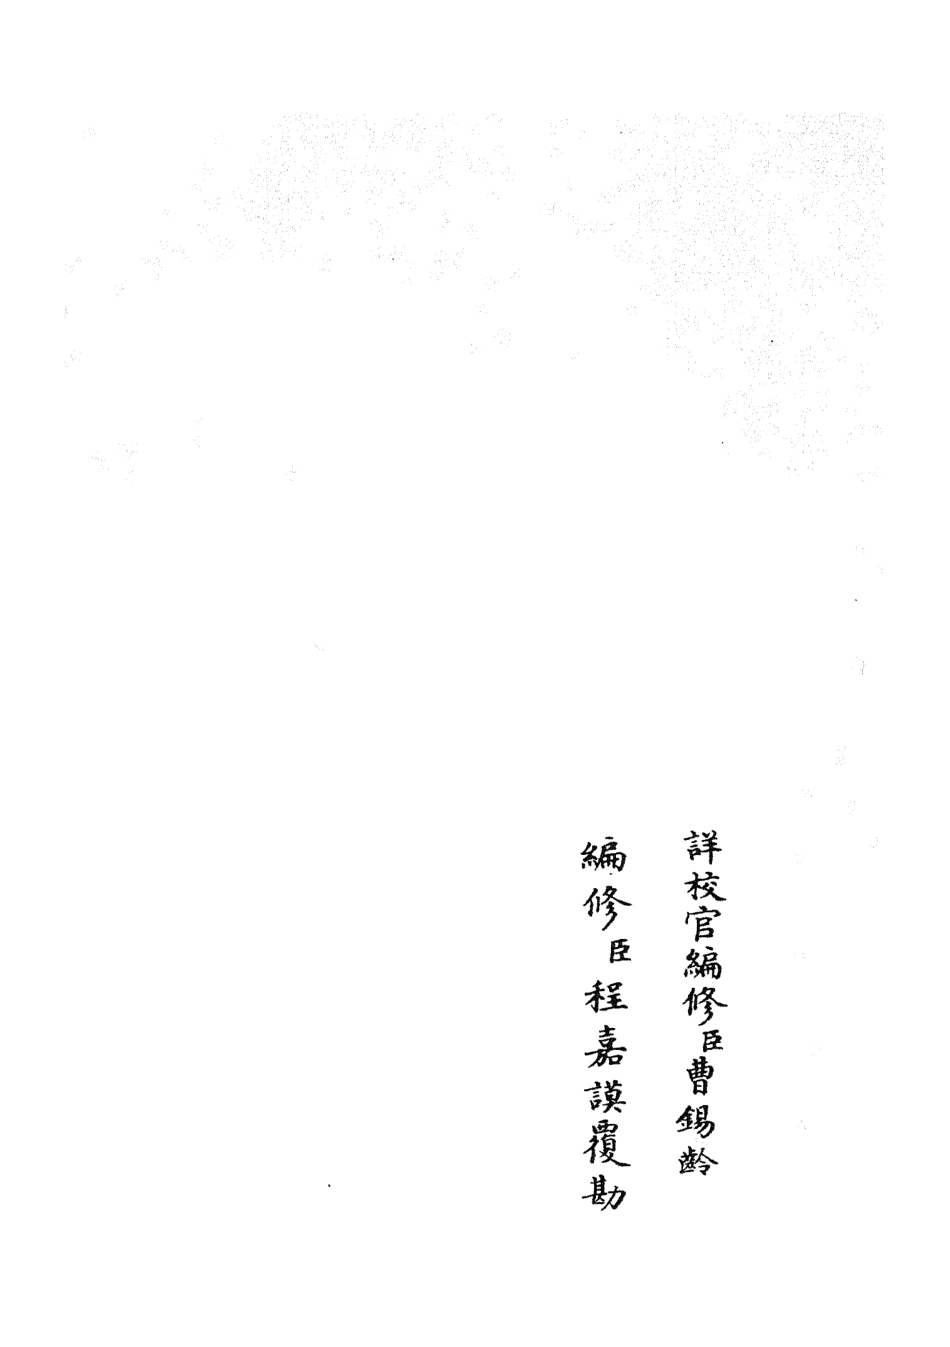 詳校官編修臣曹錫齡
編修臣程嘉謨覆勘